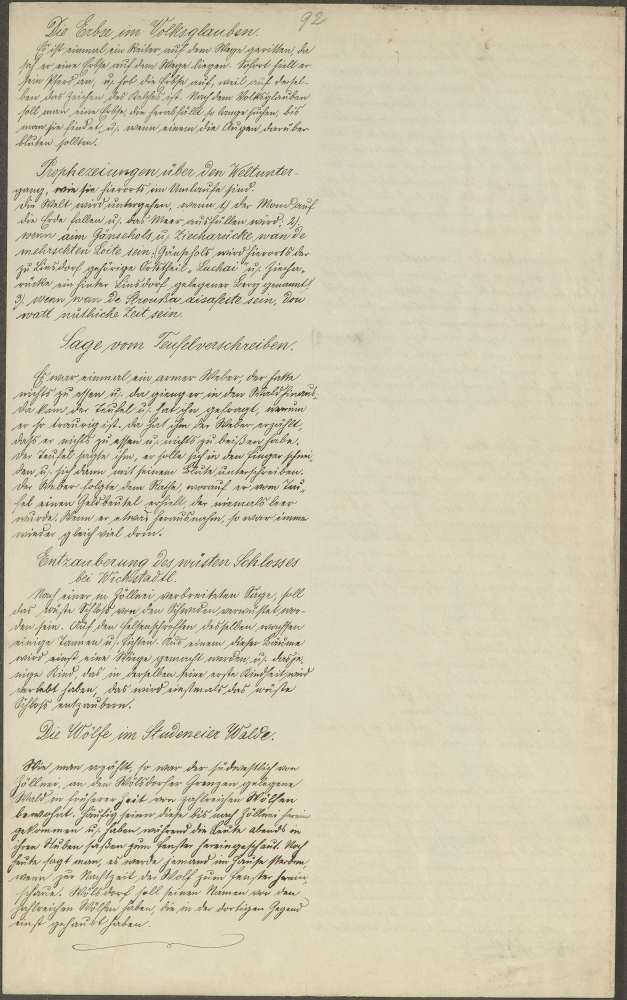 92
Die Erbse im Volksglauben.
Es ist einmal ein Reiter auf dem Wege geritten, da
sah er eine Erbse auf dem Wege liegen. Sofort hält er
sein Pferd an, u. hob die Erbse auf, weil auf dersel-
ben das Zeichen des Kelches ist. Nach dem Volksglauben
soll man eine Erbse, die herabfällt so lange suchen, bis
man sie findet, u. wenn einem die Augen darüber
bluten sollten.
Prophezeiungen über den Weltunter-
gang, wie sie hierorts im Umlaufe sind.
Die Welt wird untergehen, wenn 1) der Mond auf
die Erde fallen u. das Meer ausfüllen wird. 2)
wenn äim Gänsehols u. Ziecharücke, wan de
mehrschten Loite sein. (Gänsehols wird hierorts der
zu Linsdorf gehörige Ortstheil „Luchai“ u. Ziecha-
rücke ein hinter Linsdorf gelegener Berg genannt)
3) wenn wan de Stroußa aisafeite sein, don
watt nütliche Zeit sein.
Sage vom Teufelverschreiben.
Es war einmal ein armer Weber, der hatte
nichts zu essen u. da gieng er in den Wald hinaus.
Da kam der Teufel u. hat ihn gefragt, warum
er so traurig ist. Da hat ihm der Weber erzählt,
daß er nichts zu essen u. nichts zu beißen habe.
Der Teufel sagte ihm, er solle sich in den Finger schnei-
den u. sich dann mit seinem Blute unterschreiben.
Der Weber folgte dem Rathe, worauf er vom Teu-
fel einen Geldbeutel erhielt, der niemals leer
wurde. Wenn er etwas herausnahm, so war imme
wieder gleich viel drin.
Entzauberung des wüsten Schlosses
bei Wichstadtl.
Nach einer in Zöllnei verbreiteten Sage, soll
das wüste Schloß von den Schweden verwüstet wor-
den sein. Auf den Felsenschroffen desselben wachsen
einige Tannen u. Fichten. Aus einem dieser Bäume
wird einst eine Wiege gemacht werden u. dasje-
nige Kind, das in derselben seine erste Kindheit wird
verlebt haben, das wird einstmals das wüste
Schloß entzaubern.
Die Wölfe im Studeneier Walde.
Wie man erzählt, so war der südwestlich von
Zöllnei, an den Wölsdorfer Grenzen gelegene
Wald in früherer Zeit von zahlreichen Wölfen
bewohnt. Häufig seien diese bis nach Zöllnei herein
gekommen u. haben, während die Leute abends in
ihren Stuben saßen zum Fenster hereingeschaut. Noch
heute sagt man, es werde jemand im Hause sterben
wenn zur Nachtzeit der Wolf zum Fenster herein-
schaue. Wölsdorf soll seinen Namen von den
zahlreichen Wölfen haben, die in der dortigen Gegend
einst gehaust haben.